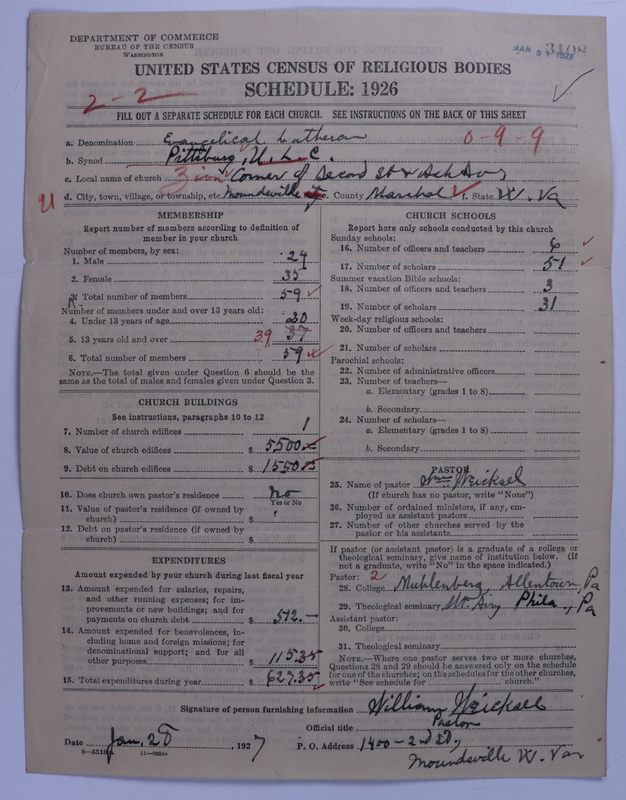 DEPARTMENT OF COMMERCE
BUREAU OF THE CENSUS
WASHINGTON
3408
UNITED STATES CENSUS OF RELIGIOUS BODIES
SCHEDULE: 1926
2-2
FILL OUT A SEPARATE SCHEDULE FOR EACH CHURCH. SEE INSTRUCTIONS ON THE BACK OF THIS SHEET
a. Denomination Evangelical Lutheran 0-9-9
b. Synod Pittsburg, U.L.C.
c. Local name of church Zion Corner of Second St & Ash Av
d. City, town, village, or township, etc. Moundsville e. County Marshal f. State W. Va
MEMBERSHIP
Report number of members according to definition of
member in your church
Number of members, by sex:
1. Male 24
2. Female 35
3. Total number of members 59
Number of members under and over 13 years old:
4. Under 13 years of age 20
5. 13 years old and over 39 37
6. Total number of members 59
NOTE.—The total given under Question 6 should be the
same as the total of males and females given under Question 3.
CHURCH BUILDINGS
See instructions, paragraphs 10 to 12
7. Number of church edifices 1
8. Value of church edifices $ 5500
9. Debt on church edifices $ 1550
10. Does church own pastor's residence No
Yes or No
11. Value of pastor's residence (if owned by
church) $
12. Debt on pastor's residence (if owned by
church) $
EXPENDITURES
Amount expended by your church during last fiscal year
13. Amount expended for salaries, repairs,
and other running expenses; for im-
provements or new buildings; and for
payments on church debt $ 512.—
14. Amount expended for benevolences, in-
cluding home and foreign missions; for
denominational support; and for all
other purposes $ 115.35
15. Total expenditures during year $ 627.35
CHURCH SCHOOLS
Report here only schools conducted by this church
Sunday schools:
16. Number of officers and teachers 6
17. Number of scholars 51
Summer vacation Bible schools:
18. Number of officers and teachers 3
19. Number of scholars 31
Week-day religious schools:
20. Number of officers and teachers
21. Number of scholars
Parochial schools:
22. Number of administrative officers
23. Number of teachers—
a. Elementary (grades 1 to 8)
b. Secondary
24. Number of scholars—
a. Elementary (grades 1 to 8)
b. Secondary
PASTOR
25. Name of pastor Wm Weicksel
(If church has no pastor, write "None")
26. Number of ordained ministers, if any, em-
ployed as assistant pastors
27. Number of other churches served by the
pastor or his assistants
If pastor (or assistant pastor) is a graduate of a college or
theological seminary, give name of institution below. (If
not a graduate, write "No" in the space indicated.)
Pastor: 2
28. College Muhlenberg Allentown, Pa
29. Theological seminary Mt. Airy Phila., Pa
Assistant pastor:
30. College
31. Theological seminary
NOTE.—Where one pastor serves two or more churches,
Questions 28 and 29 should be answered only on the schedule
for one of the churches; on the schedules for the other churches,
write "See schedule for church."
Signature of person furnishing information William Weicksel
Official title Pastor
Date Jan, 28, 1927 P. O. Address 1400-2nd St,
Moundsville W. Va